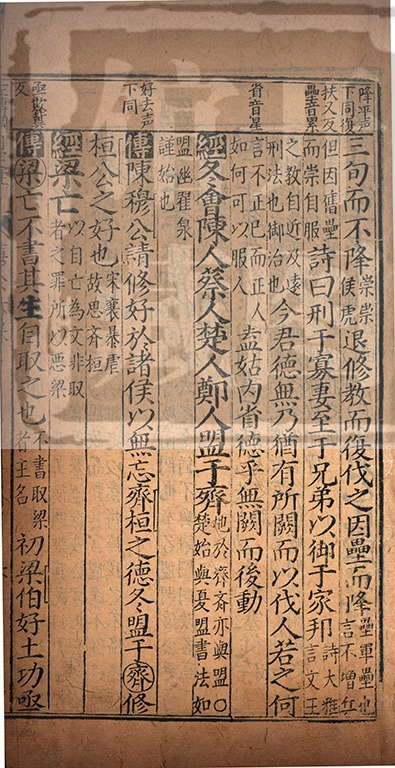 降平声
下同復
扶又反
壘音累
三句而不降崇崇侯虎退修教而復伐之因壘而降壘軍壘也言不增兵
但因舊壘而崇自服詩曰刑于寡妻至于兄弟以御于家邦詩大雅言文王
之教自近及遠刑法也御治也今君德無乃猶有所闕而以伐人若之何
省音星
言不正己而正人如何可以服人盍姑內省德乎無闕而後動
經冬會陳人蔡人楚人鄭人盟于齊地於齊齊亦與盟○楚始與夏盟書法如
盟幽翟泉謹始也
好去声
下同
傳陳穆公請修好於諸侯以無忘齊桓之德冬盟于齊修
桓公之好也宋襄暴虐故思齊桓
經梁亡以自亡為文非取者之罪所以惡梁
亟欺冀
反
傳梁亡不書其生自取之也不書取梁者王名初梁伯好土功亟